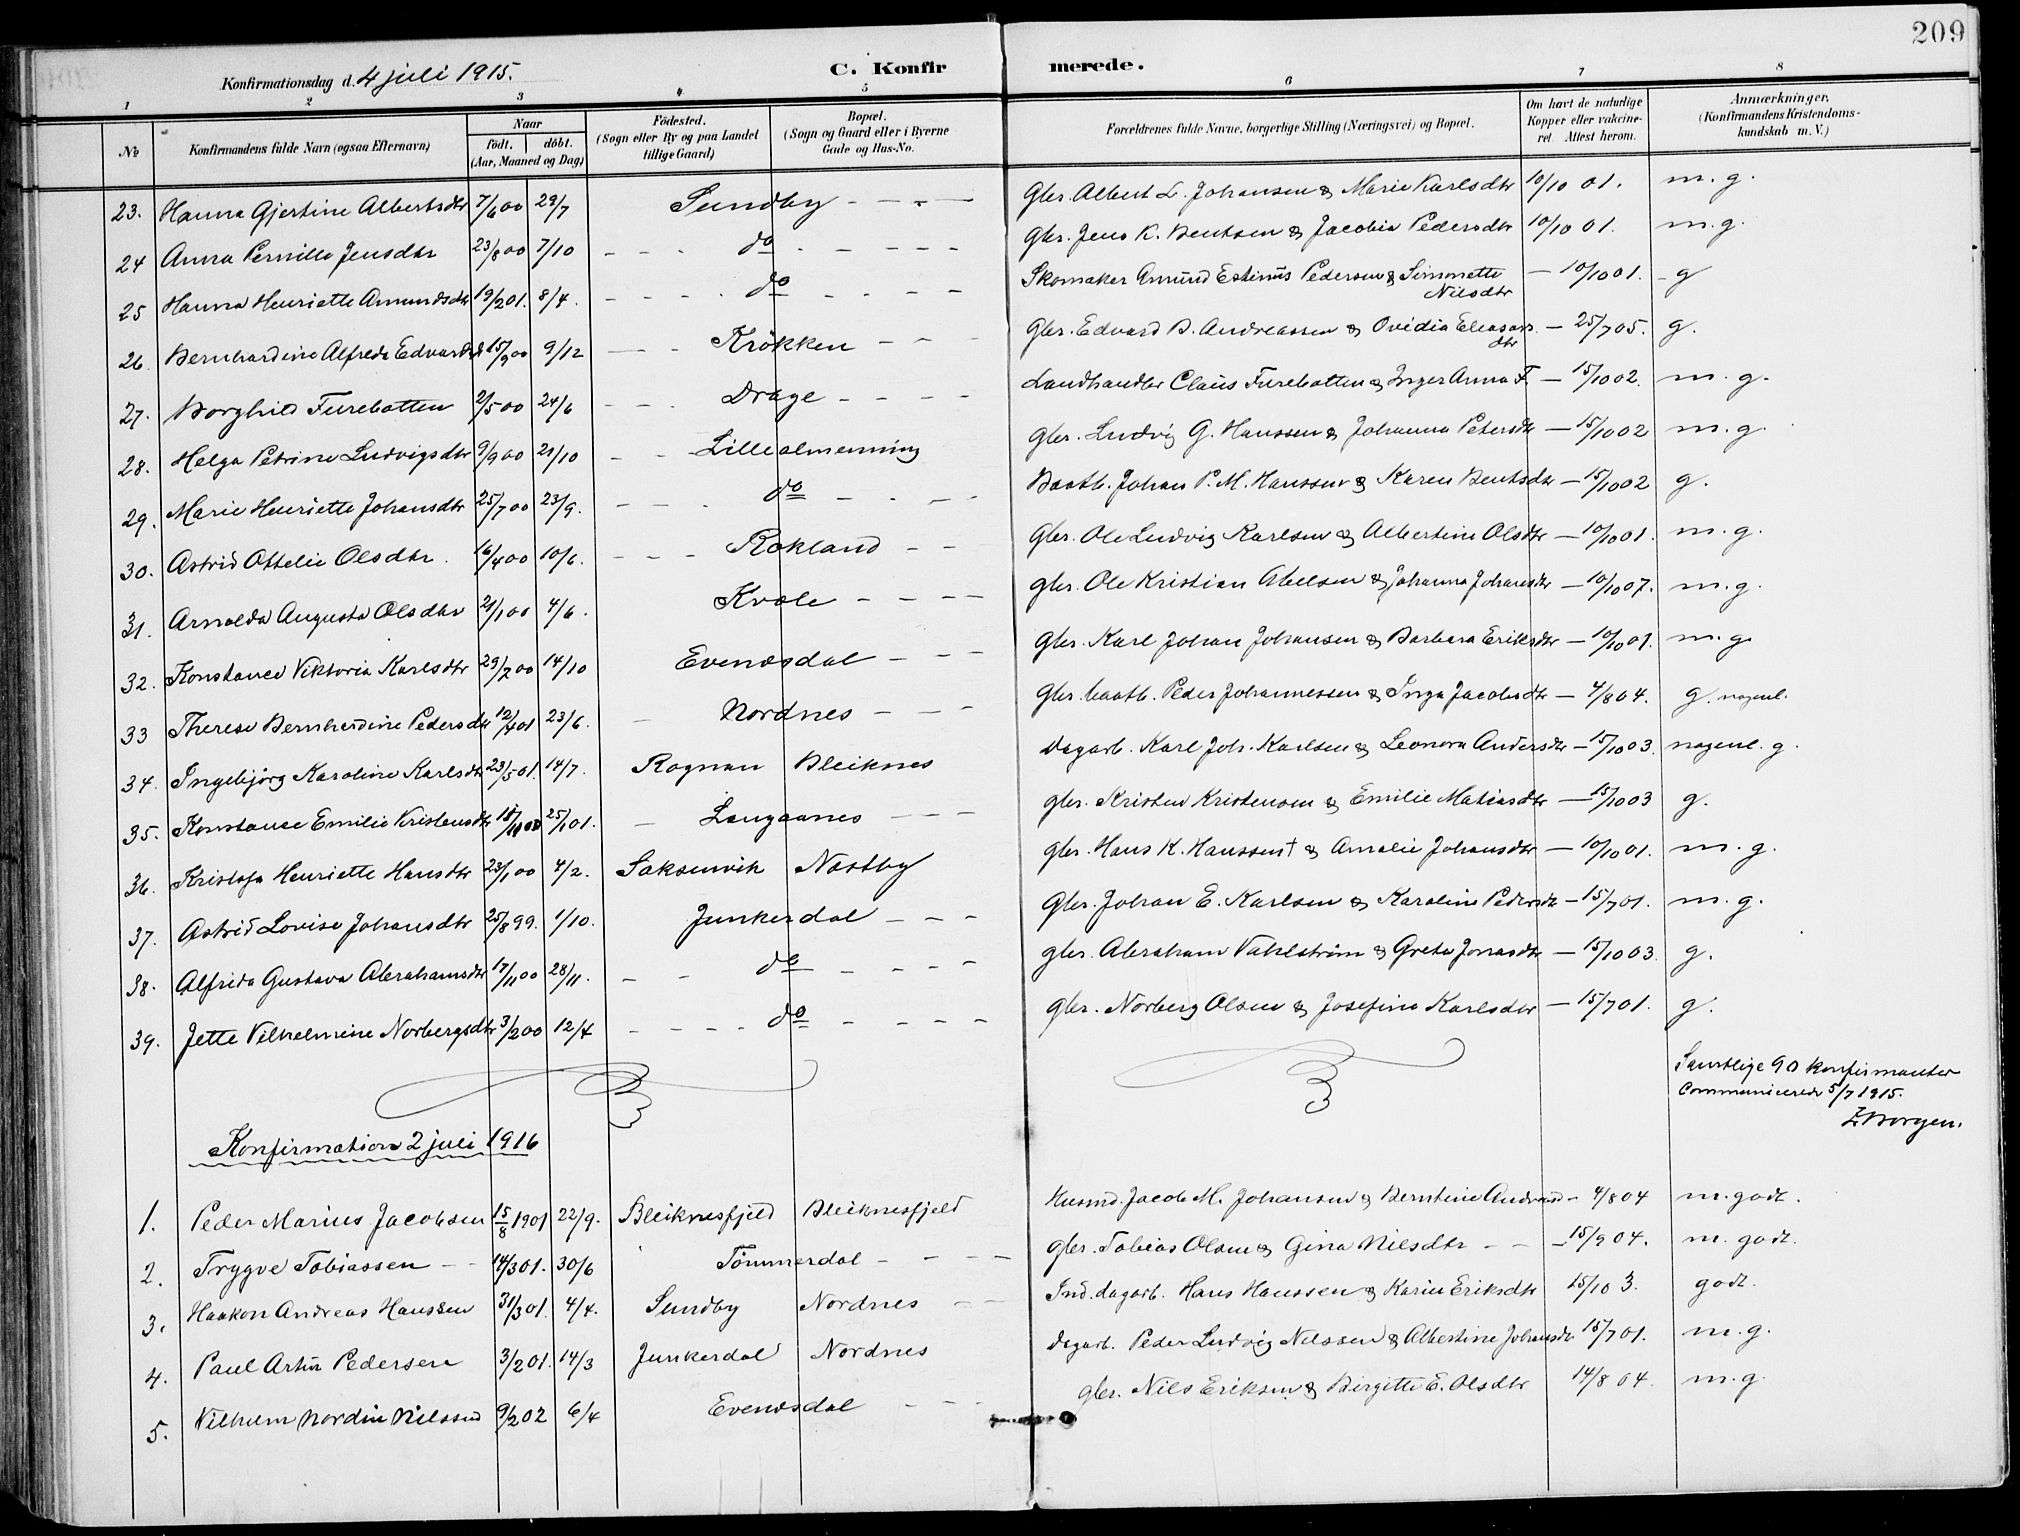 209
Konfirmationsdag d. 4 juli 1915. C. Konfirmerede.
1 2 3 4 5 6 7 8
No Konfirmandens fulde Navn (ogsaa Efternavn) Naar født. døbt. (Aar, Maaned og Dag) Fødested. (Sogn eller By og paa Landet tillige Gaard) Bopæl. (Sogn og Gaard eller i Byerne Gade og Hus-No. Forældrenes fulde Navne, borgerlige Stilling (Næringsvei) og Bopæl. Om havt de naturlige Kopper eller vakcineret. Attest herom. Anmærkninger. (Konfirmandens Kristendomskundskab m. V.)
23. Hanna Gjertine Albertsdtr 7/6 00 29/7 Sundby - - - - Gbr. Albert L. Johansen & Marie Karlsdtr 10/10 01. m. g.
24 Anna Pernille Jensdtr 23/8 00 7/10 - - - do - - - - Gbr. Jens K. Bentsen & Jacobia Pedersdtr 10/10 01. m. g.
25 Hanna Henriette Amundsdtr 19/2 01. 8/4. - - - - do - - - - Skomaker Amund Estinus Pedersen & Simonette Nilsdtr — 10/10 01. - g
26. Bernhardine Alfreda Edvardsd 15/9 00 9/12 - - - Krökken - - - Gbr. Edvard B. Andreassen & Ovidia Eleasars dtr — 25/7 05. g.
27. Borghild Furebotten 2/5 00 24/6 - - - Drage - - - - Landhandler Claus Furebotten & Inger Anna F. — 15/10 02. m. g.
28. Helga Petrine Ludvigsdtr 9/9 00 21/10 - - - Lillealmenning Gbr. Ludvig G. Hanssen & Johanna Petersdtr — 15/10 02 m. g.
29. Marie Henriette Johansdtr 25/7 00 23/9. - - - do - - - - Baatb. Johan P. M. Hanssen & Karen Bentsdtr — 15/10 02 g.
30. Astrid Ottelie Olsdtr. 16/4 00 10/6. - - - Rokland - - Gbr. Ole Ludvig Karlsen & Albertine Olsdtr — 10/10 01. m. g.
31. Arnolda Augusta Olsdtr 21/1 00 4/6. Kvæle - - - - gbr. Ole Kristian Abelsen & Johanna Johansdtr — 10/10 07. m. g.
32. Konstance Viktoria Karlsdtr 29/7 00 14/10 Evenesdal - - - Gbr. Karl Johan Johansen & Barbara Eriksdtr — 10/10 01. m. g.
33 Therese Bernhardine Pedersdtr 12/4 01 23/6. - Nordnes - - - Gbr. baatb. Peder Johannessen & Inga Jacobsdtr — 4/8 04. g. nogenl.
34. Ingebjørg Karoline Karlsdtr 23/5 01. 14/7. Rognan Bleiknes Dagarb. Karl Joh. Karlsen & Leonora Andersdtr — 15/10 03. nogenl. g.
35. Konstance Emilie Kristensdtr 18/11 00 25/1 01. - Langaanes - - - gbr. Kristen Kristensen & Emilie Matiasdtr — 15/10 03 g.
36. Kristofa Henriette Hansdtr 23/1 00 4/2. Saksenvik Nestby gbr. Hans K. Hanssen † & Amalie Johansdtr — 10/10 01. m. g.
37. Astrid Lovise Johansdtr 25/8 99. 1/10. Junkerdal - - - Gbr. Johan E. Karlsen & Karoline Pedersdtr — 15/7 01. m. g.
38. Alfrida Gustava Abrahamsdtr 17/11 00 28/11. - - do - - - - gbr. Abraham Vahlström & Greta Jonasdtr — 15/10 03. g.
39. Jette Vilhelmine Norbergsdtr 3/2 00 12/4 - - - - do - - - - gbr. Norberg Olsen & Josefine Karlsdtr — 15/7 01. g.
Samtlige 90 konfirmanter
Communicerede 5/7 1915.
Z Borgen.
Konfirmation 2 juli 1916
1. Peder Marius Jacobsen 15/8 1901 22/9. Bleiknesfjeld Bleiknesfjeld Husmd. Jacob M. Johansen & Berntine Andreasd - 4/8 04 m. godt.
2. Trygve Tobiassen - - 14/3 01. 30/6 Tømmerdal - - - - gbr. Tobias Olsen & Gina Nilsdtr - - - 15/9 04. m. godt.
3. Haakon Andreas Hanssen 31/3 01. 4/4. Sundby Nordnes - - Ind. dagarb. Hans Hanssen & Karin Eriksdtr 15/10 3. godt.
4. Paul Artur Pedersen 3/2 01. 14/3 Junkerdal Nordnes Dagarb. Peder Ludvig Nilssen & Albertine Johansdtr 15/7 01. m. g.
5. Vilhelm Nordin Nilssen 9/2 02 6/4 Evenesdal - - - gbr. Nils Eriksen & Birgitte E. Olsdtr 14/8 04. m. g.